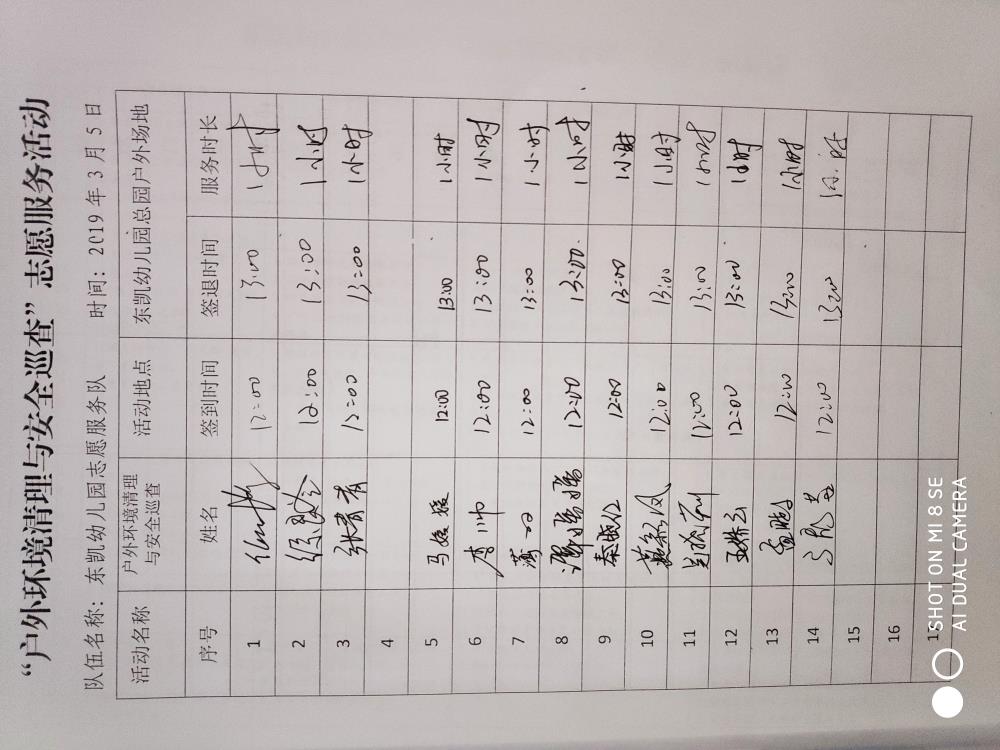 “户外环境清理与安全巡查”志愿服务活动
队伍名称：东凯幼儿园志愿服务队 时间：2019年3月5日
活动名称 户外环境清理与安全巡查 活动地点 东凯幼儿园总园户外场地
序号 姓名 签到时间 签退时间 服务时长
1 12:00 13:00 1小时
2 12:00 13:00 1小时
3 张青青 12:00 13:00 1小时
4
5 马媛媛 12:00 13:00 1小时
6 李帅 12:00 13:00 1小时
7 12:00 13:00 1小时
8 12:00 13:00 1小时
9 秦 12:00 13:00 1小时
10 12:00 13:00 1小时
11 12:00 13:00 1小时
12 12:00 13:00 1小时
13 12:00 13:00 1小时
14 12:00 13:00 1小时
15
16
17
SHOT ON MI 8 SE
AI DUAL CAMERA